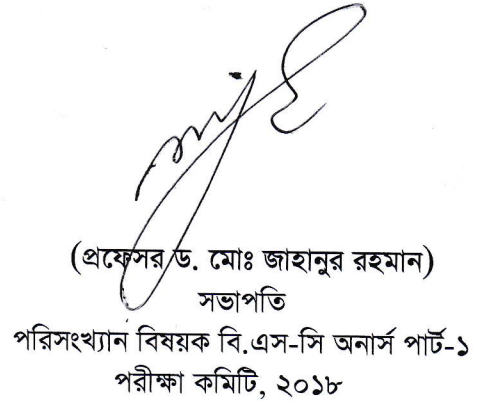 (প্রফেসর ড. মোঃ জাহানুর রহমান)
সভাপতি
পরিসংখ্যান বিষয়ক বি.এস-সি অনার্স পার্ট-১
পরীক্ষা কমিটি, ২০১৮